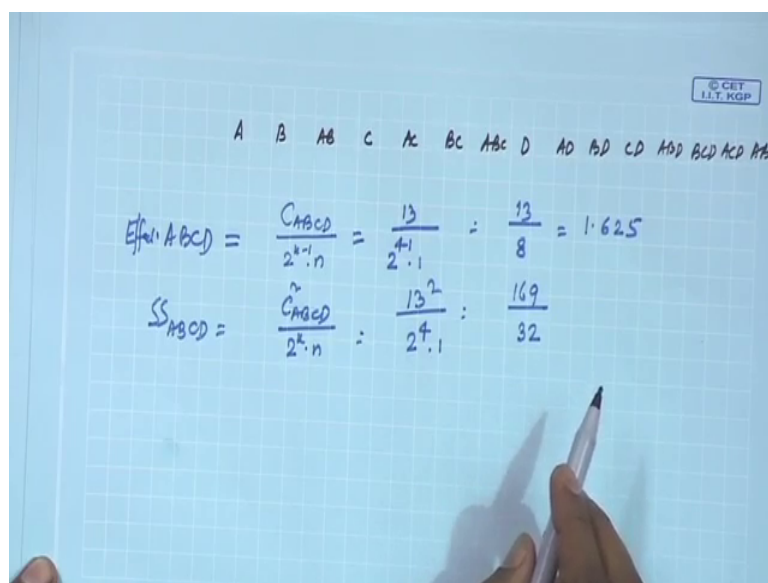 © CET
I.I.T. KGP
A B AB C AC BC ABC D AD BD CD ABD BCD ACD AB
Effect ABCD = C_ABCD / 2^(k-1)·n = 13 / 2^(4-1)·1 = 13 / 8 = 1.625
SS_ABCD = C²_ABCD / 2^k·n = 13² / 2^4·1 = 169 / 32